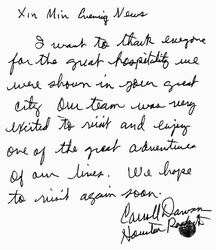 Xin Min Evening News
I want to thank everyone
for the great hospitality we
were shown in your great
city. Our team was very
excited to visit and enjoy
one of the great adventures
of our lives. We hope
to visit again soon.
Carroll Dawson
Houston Rockets